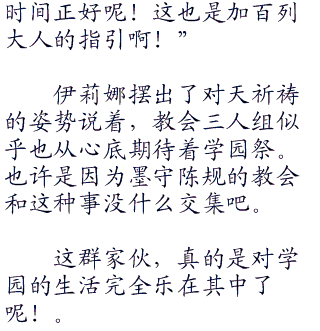 时间正好呢！这也是加百列
大人的指引啊！”
伊莉娜摆出了对天祈祷
的姿势说着，教会三人组似
乎也从心底期待着学园祭。
也许是因为墨守陈规的教会
和这种事没什么交集吧。
这群家伙，真的是对学
园的生活完全乐在其中了
呢！。